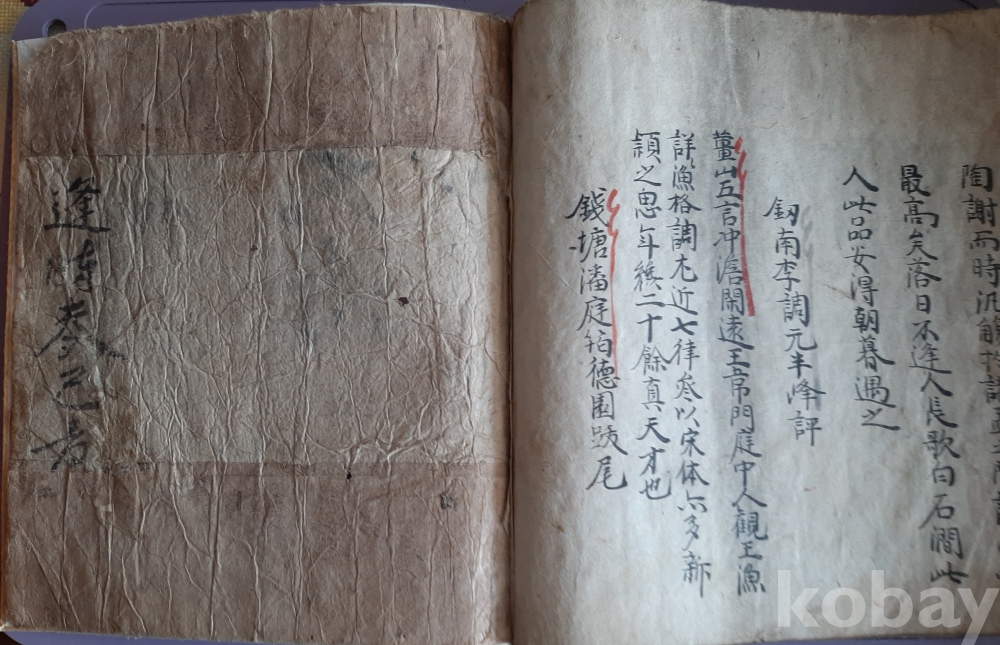 陶謝而時汎
最高矣落日不逢人長歌白石澗此
人此品安得朝暮遇之
釰南李調元半峰評
薑山五言冲澹閑遠王韋門庭中人觀王漁
詳漁格調尤近七律叅以宋体亦多新
頴之思年纔二十餘真天才也
錢塘潘庭筠德園跋尾
逢
kobay